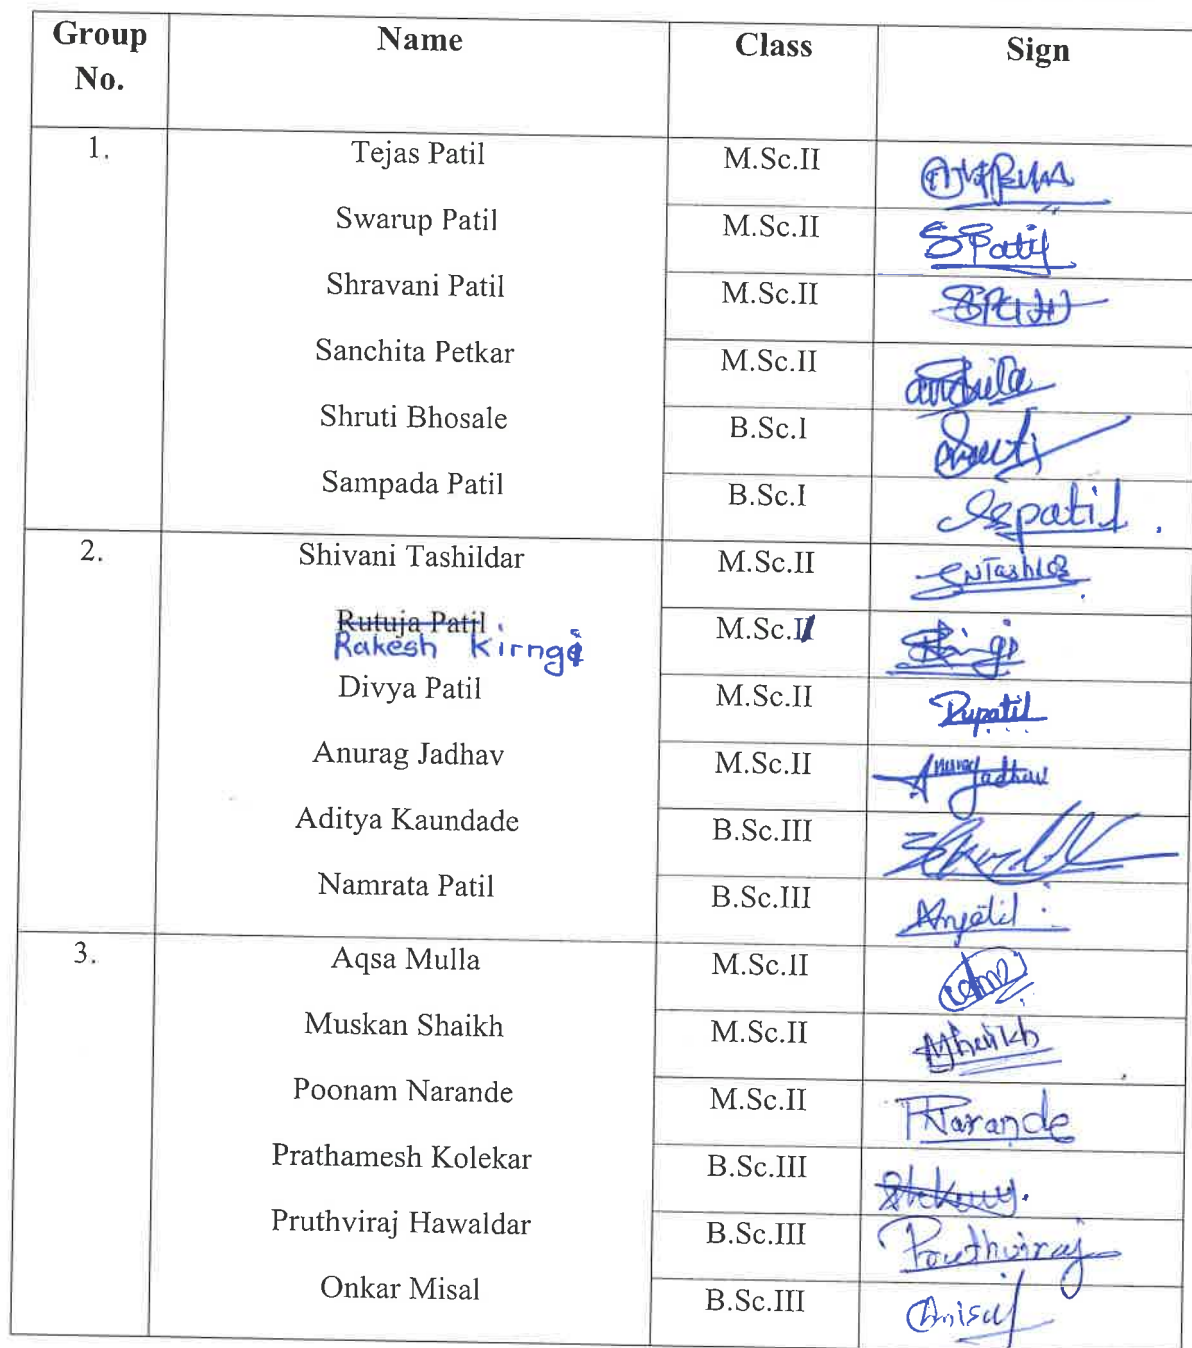 Group No. Name Class Sign
1. Tejas Patil M.Sc.II
Swarup Patil M.Sc.II SPatil
Shravani Patil M.Sc.II
Sanchita Petkar M.Sc.II
Shruti Bhosale B.Sc.I
Sampada Patil B.Sc.I Sspatil.
2. Shivani Tashildar M.Sc.II
Rutuja Patil M.Sc.II
Rakesh Kirngi
Divya Patil M.Sc.II
Anurag Jadhav M.Sc.II Anurag Jadhav
Aditya Kaundade B.Sc.III
Namrata Patil B.Sc.III
3. Aqsa Mulla M.Sc.II
Muskan Shaikh M.Sc.II
Poonam Narande M.Sc.II PNarande
Prathamesh Kolekar B.Sc.III
Pruthviraj Hawaldar B.Sc.III Pruthviraj
Onkar Misal B.Sc.III